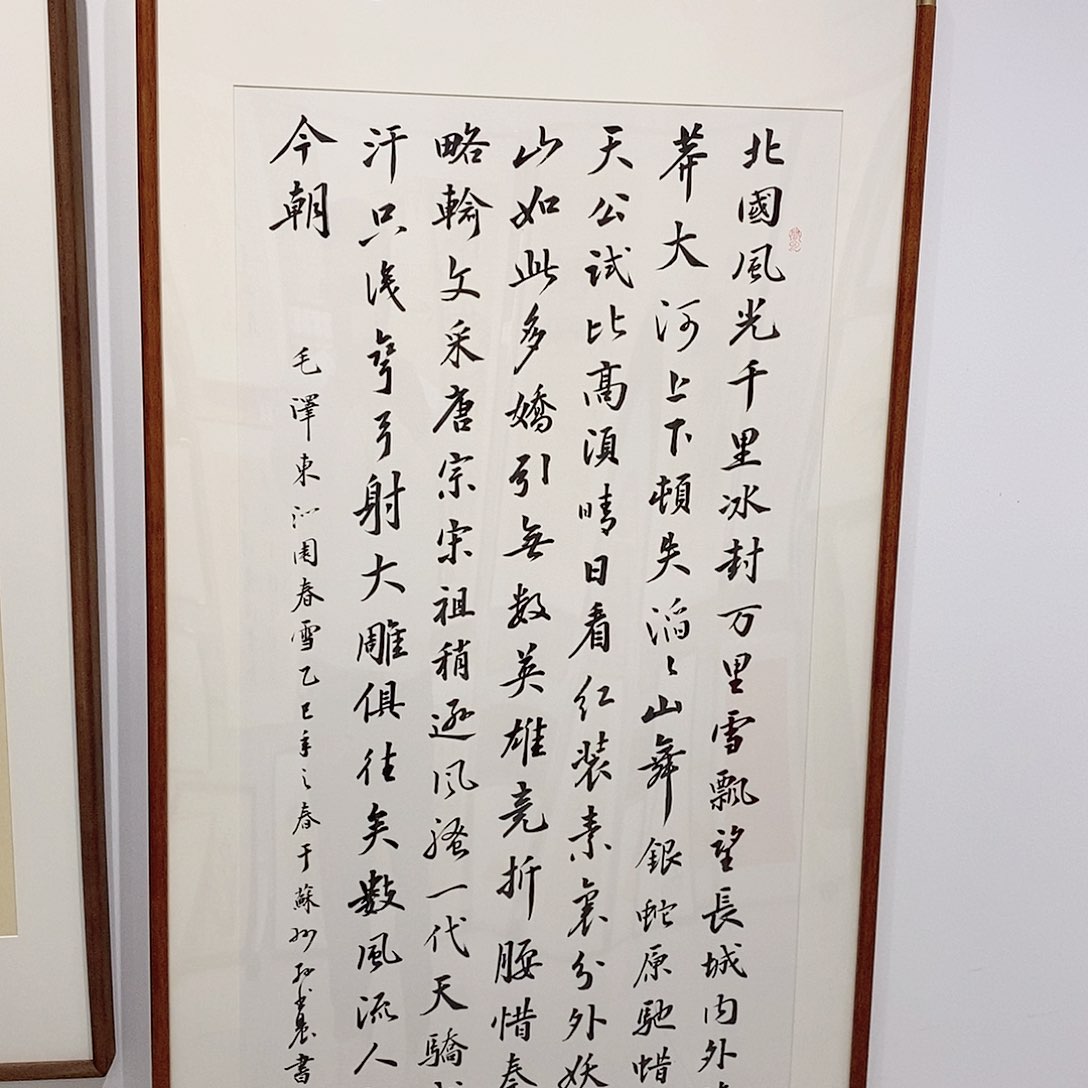 北國風光千里冰封万里雪飄望長城内外
莽大河上下頓失滔〻山舞銀蛇原馳蜡
天公試比高須晴日看红装素裹分外妖
山如此多嬌引無数英雄竞折腰惜秦
略輸文采唐宗宋祖稍逊风骚一代天驕
汗只识弯弓射大雕俱往矣數風流人
今朝
毛澤东沁園春雪乙巳年之春于蘇州
書